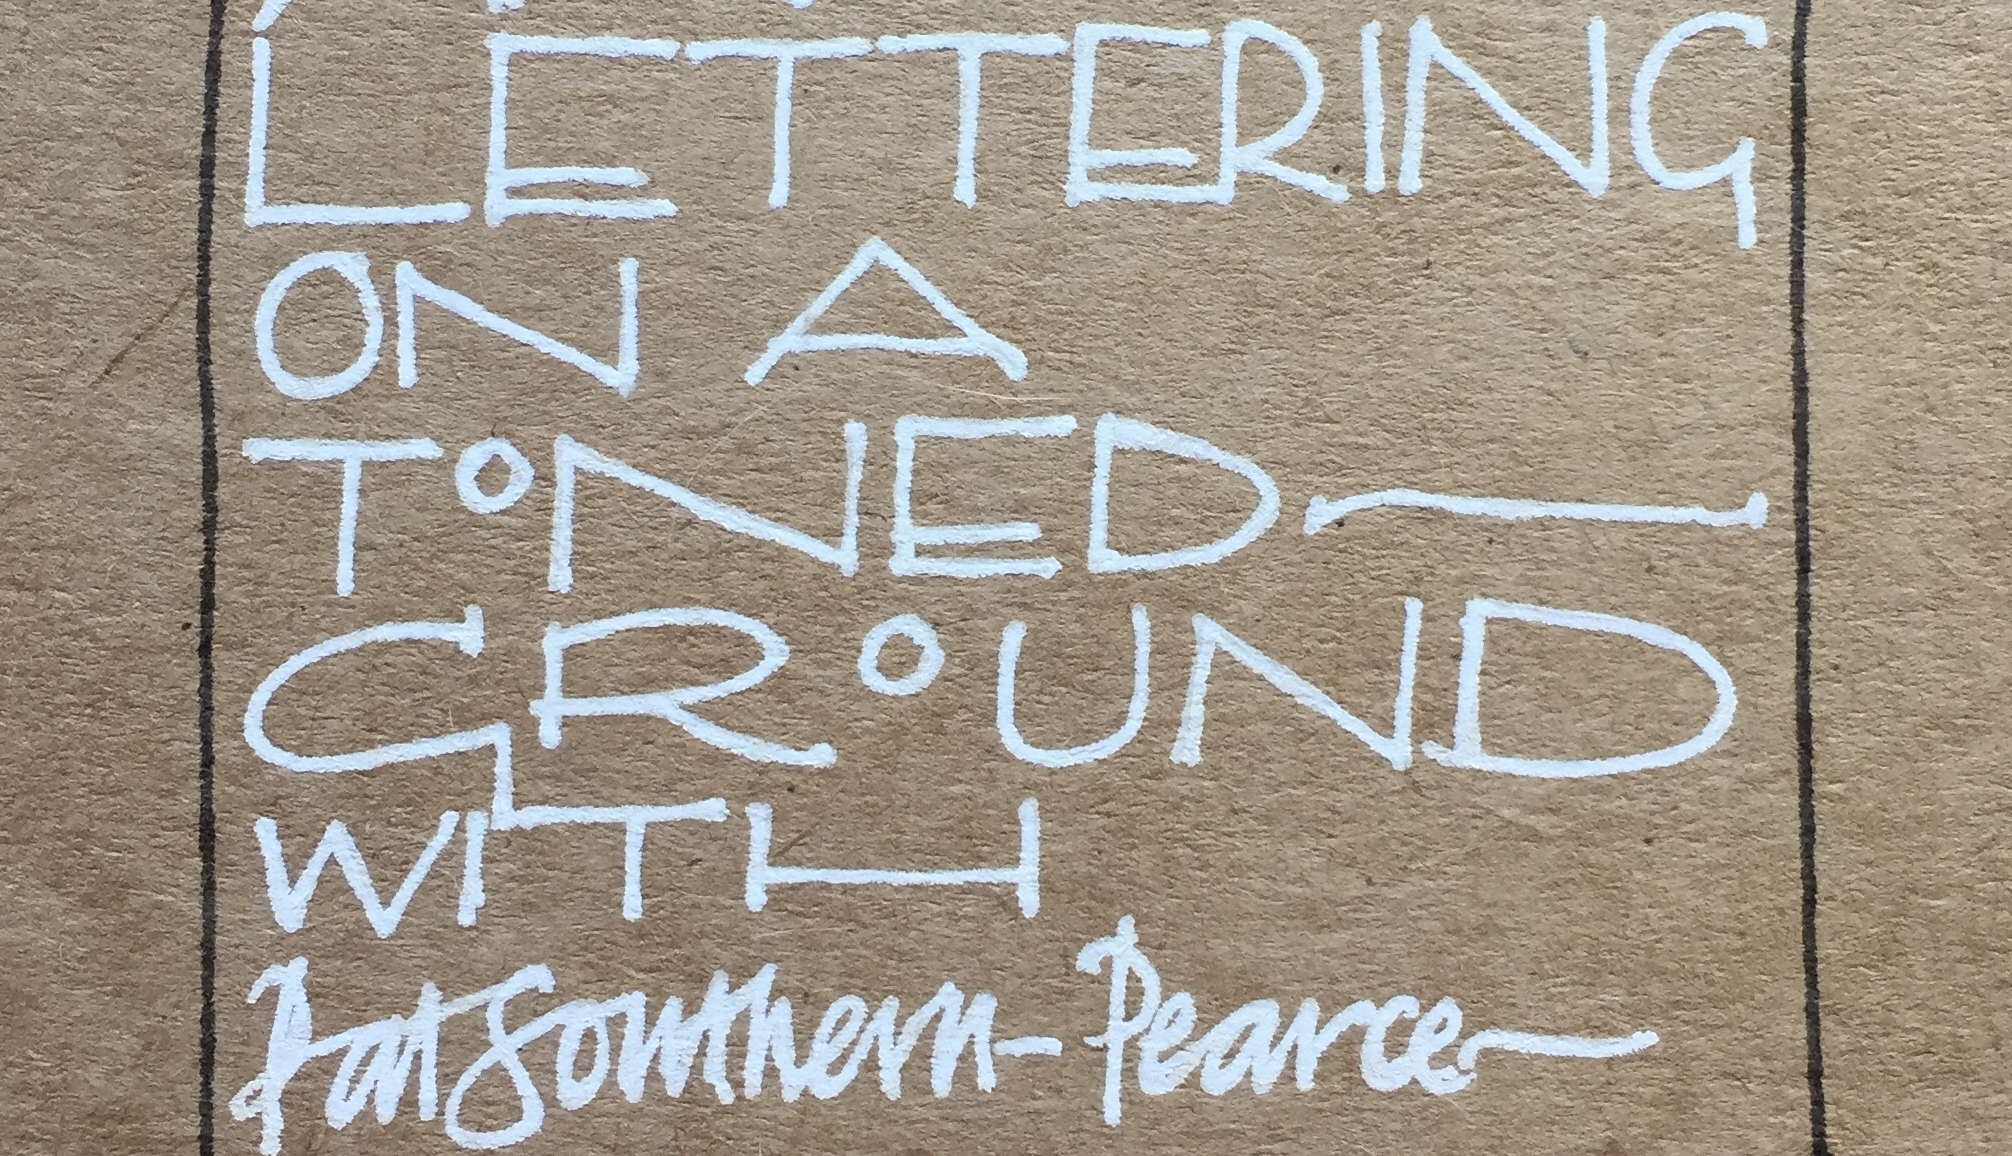 LETTERING
ON A
TONED
GROUND
WITH
Pat Southern-Pearce